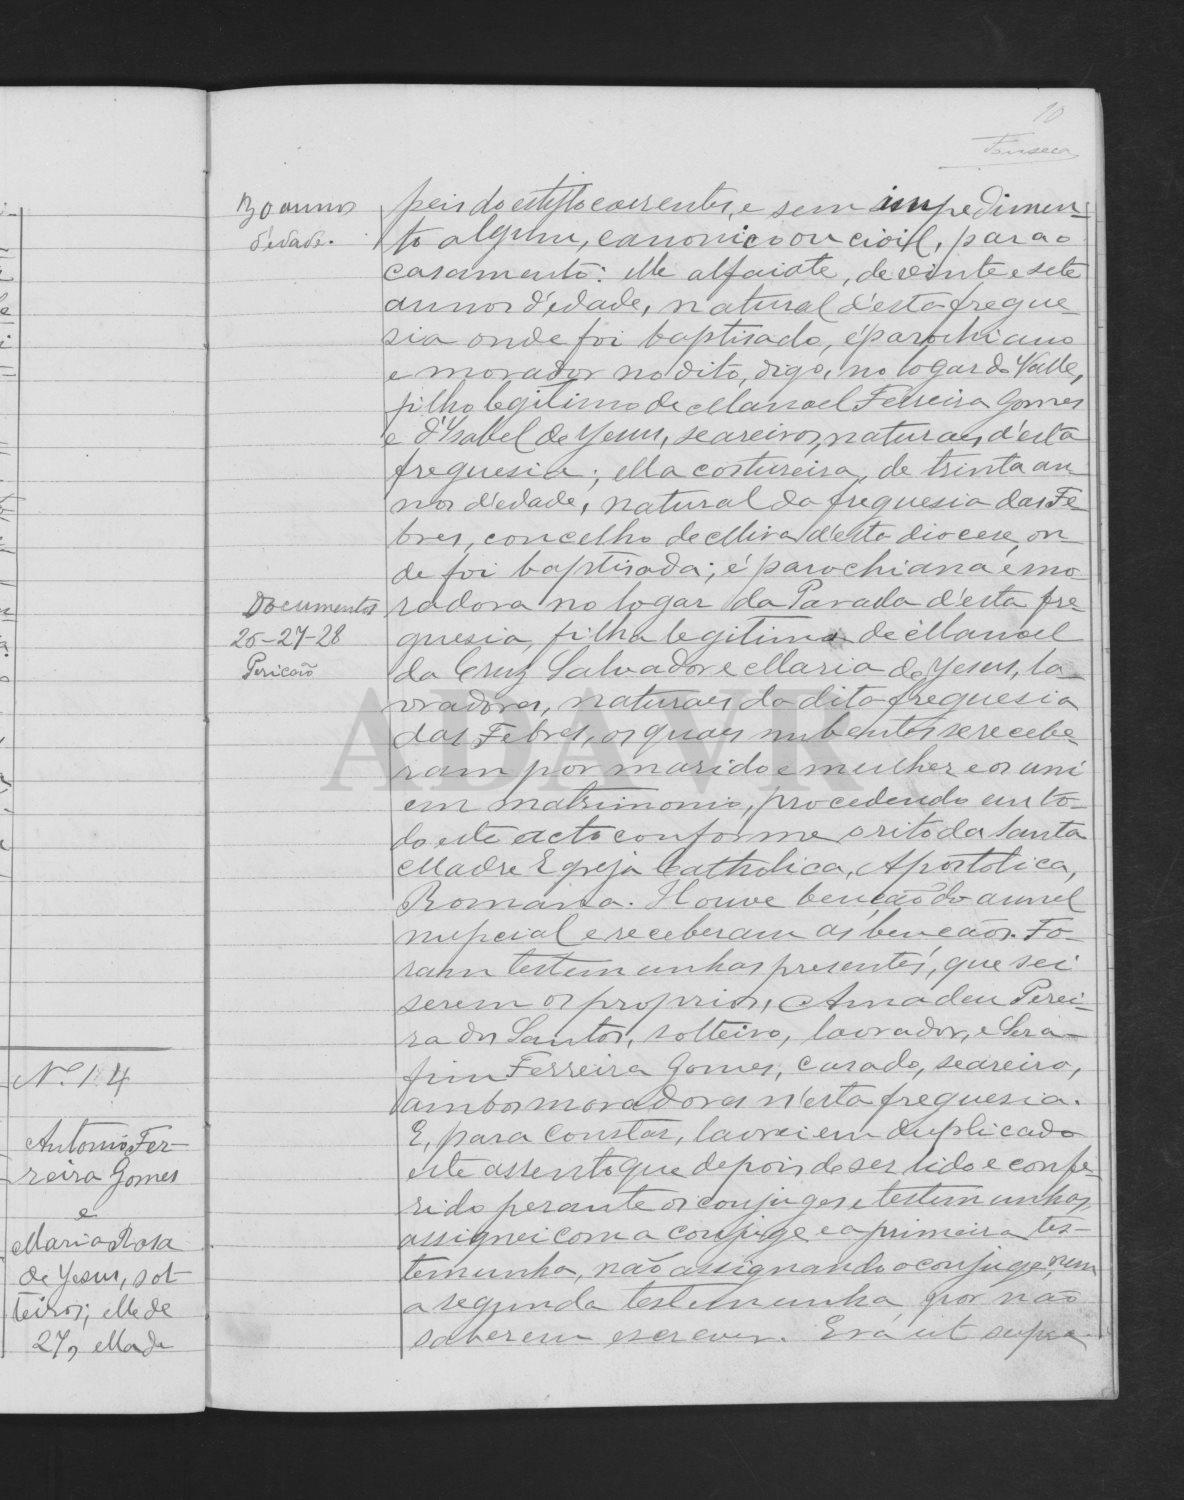 10
Fonseca
Nº 14
Antonio Fer-
reira Gomes
e
Maria Rosa
de Yesus, sol
teiros; elle de
27, ella de
30 annos
d'edade.
Documentos
26-27-28
peis do estylo correntes, e sem impedimen-
to algum, canonico ou civil, para o
casamento: elle alfaiate, de vinte e sete
annos d'edade, natural d'esta fregue
sia onde foi baptisado, é parochiano
e morador no dito, digo, no logar do Valle,
filho legitimo de Manoel Ferreira Gomes
e d'Ysabel de Yesus, seareiros, naturaes d'esta
freguesia; ella costureira, de trinta an
nos d'edade, natural da freguesia das Fe
bres, concelho de Mira d'esta diocese, on
de foi baptisada; é parochiana e mo
radora no logar da Parada d'esta fre
guesia, filha legitima de Manoel
da Cruz Salvador e Maria de Yesus, la
vradores, naturaes da dita freguesia
das Febres, os quaes nubentes se recebe-
ram por marido e mulher e os uni
em matrimonio, procedendo em to-
do este acto conforme o rito da Santa
Madre Egreja Catholica, Apostolica,
Romana. Houve benção do annel
nupcial e receberam as bençãos. Fo-
ram testemunhas presentes, que sei
serem os proprios, Amadeu Perei-
ra dos Santos, solteiro, lavrador, e Sera-
fim Ferreira Gomes, casado, seareiro,
ambos moradores n'esta freguesia.
E, para constar, lavrei em duplicado
este assento que depois de ser lido e confe-
rido perante os conjuges e testemunhas,
assignei com a conjuge e a primeira tes-
temunha, não assignando o conjuge, nem
a segunda testemunha por não
saberem escrever. Era ut supra
ADAVR